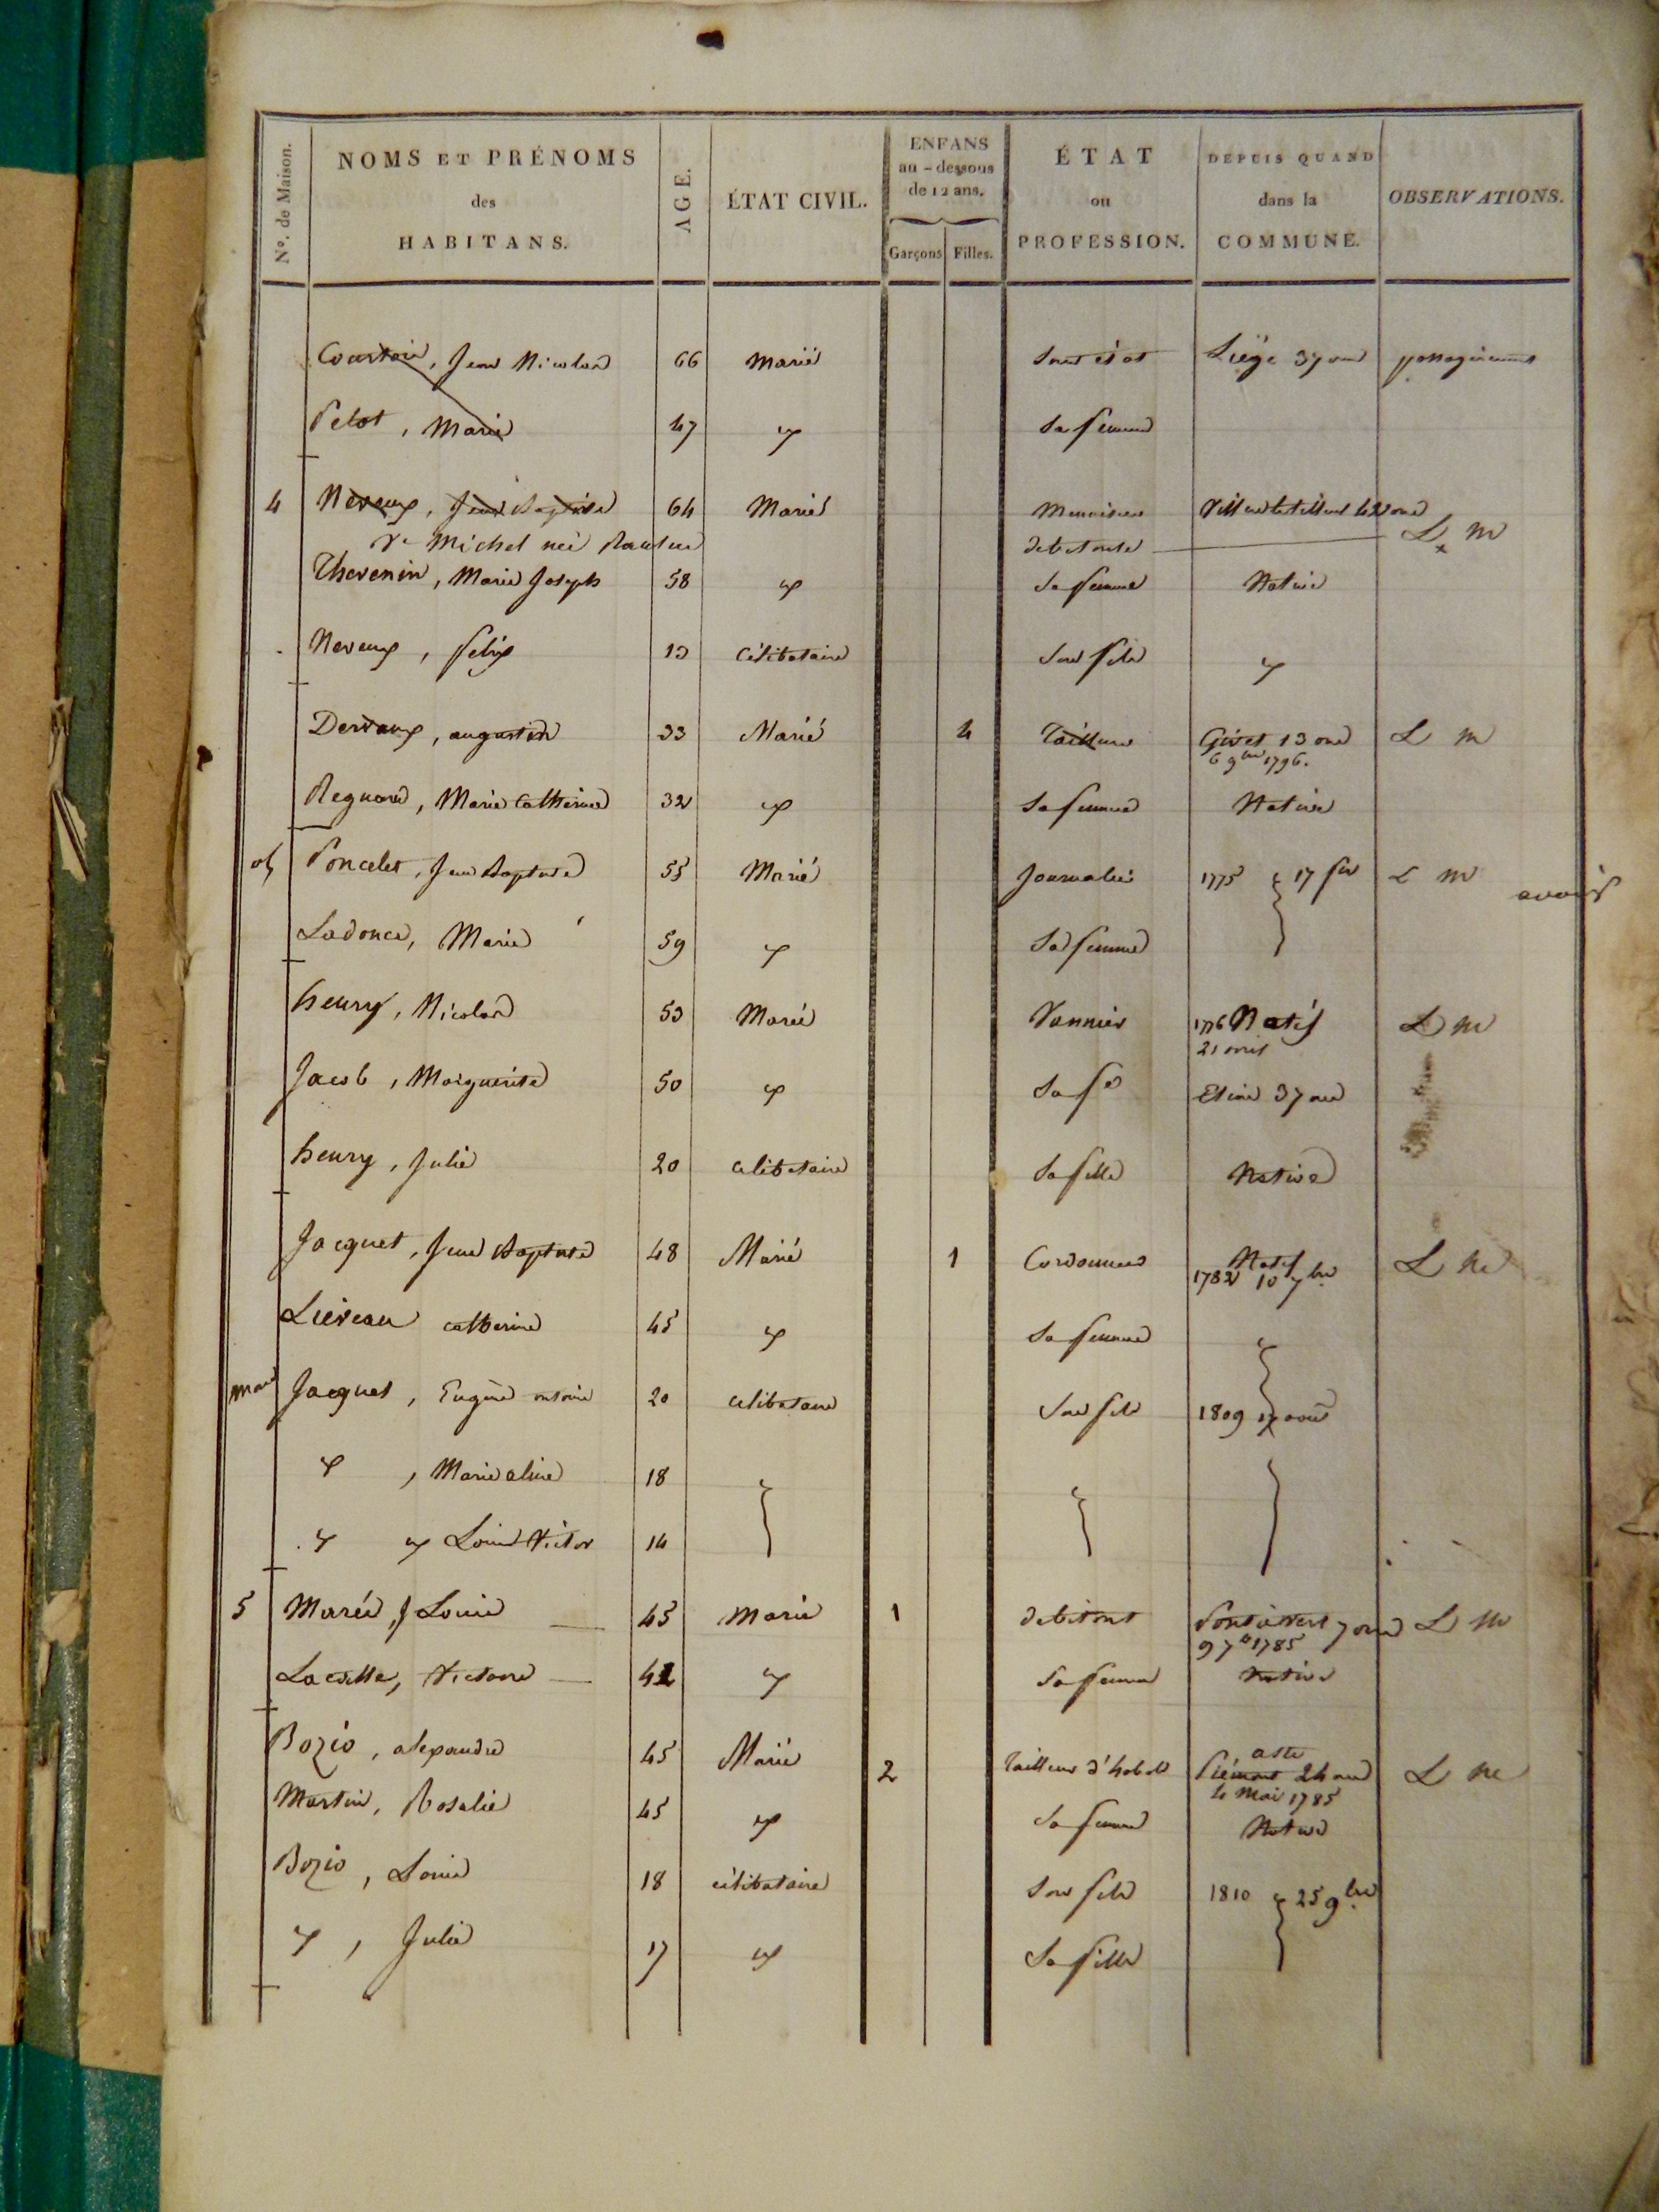 N°. de Maison. NOMS ET PRÉNOMS des HABITANS. AGE. ÉTAT CIVIL. ENFANS au-dessous de 12 ans. Garçons Filles. ÉTAT ou PROFESSION. DEPUIS QUAND dans la COMMUNE. OBSERVATIONS.
Courtois, Jean Nicolas 66 Marié Sans état Liége 37 ans
Petot, Marie 47 Sa femme
4 Neveux, Jean Baptiste 64 Marié Menuisier 42 ans
Ve Michel née debitante L m
Thevenin, Marie Joseph 58 Sa femme Native
Neveux, felix 13 Célibataire Son fils
Dervaux, augustin 33 Marié 4 Tailleur Givet 13 ans L m
6 9bre 1796.
Regnard, Marie Catherine 32 Sa femme Native
Poncelet, Jean Baptiste 55 Marié Journalier 1775 17 L m
Ladonce, Marie 59 Sa femme
henry, Nicolas 53 Marié Vannier 1776 Natif L m
21
Jacob, Marguerite 50 Sa fe 37 ans
henry, Julie 20 celibataire Sa fille Native
Jacquet, Jean Baptiste 48 Marié 1 Cordonnier Natif L m
1782 10 7bre
Liéveau catherine 45 Sa femme
Jacquet, Eugène antoine 20 celibataire Son fils 1809 17 aout
, Marie aline 18
Louis Victor 14
5 Marée, J Louis 45 Marié 1 debitant 7 ans L m
9 7bre 1785
Victoire 42 Sa femme Native
Bozio, alexandre 45 Marié 2 Tailleur d'habits Piémont 24 ans L m
4 Mai 1785
Martin, Rosalie 45 Sa femme Native
Bozio, Louis 18 célibataire Son fils 1810 25 9bre
, Julie 17 Sa fille